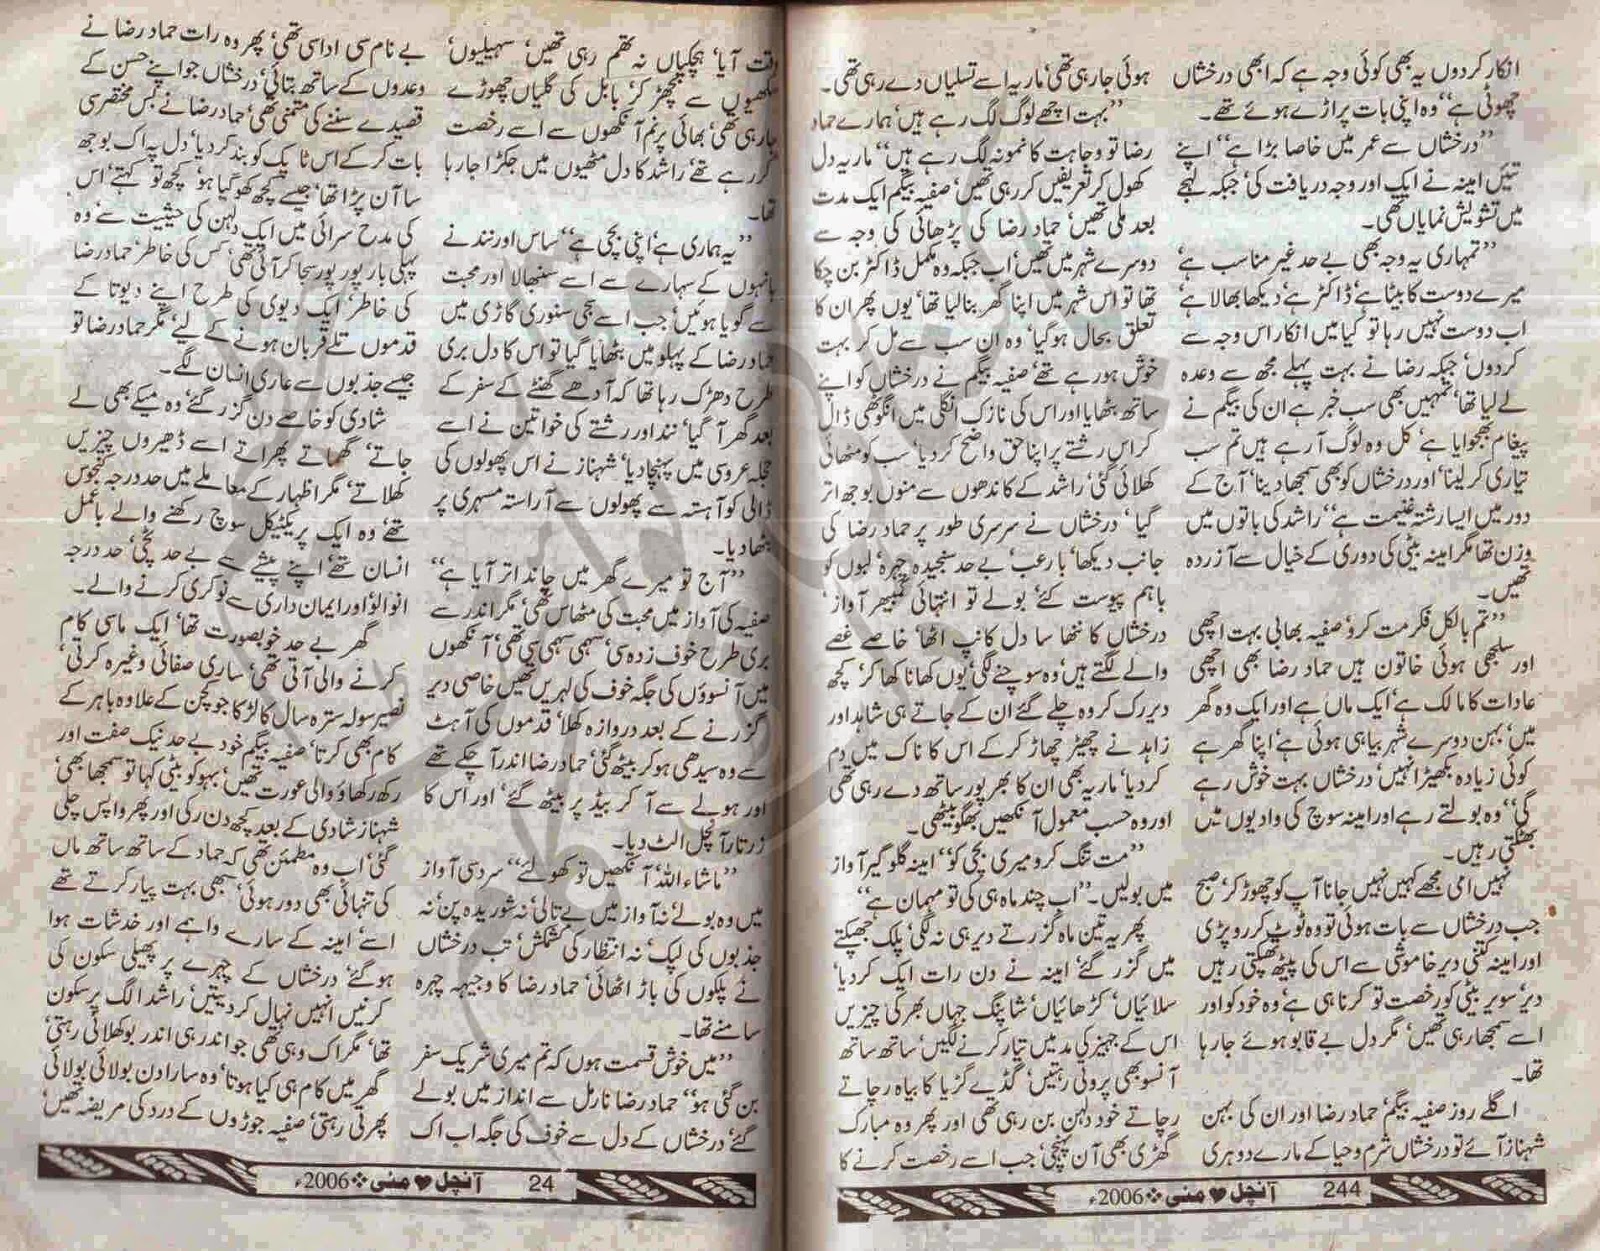 انکار کردوں یہ بھی کوئی وجہ ہے کہ ابھی درخشاں
چھوٹی ہے“ وہ اپنی بات پر اڑے ہوئے تھے۔
”درخشاں سے عمر میں خاصا بڑا ہے“ اپنے
تئیں امینہ نے ایک اور وجہ دریافت کی‘ جبکہ لہجے
میں تشویش نمایاں تھی۔
”تمہاری یہ وجہ بھی بے حد غیر مناسب ہے‘
میرے دوست کا بیٹا ہے‘ ڈاکٹر ہے‘ دیکھا بھالا ہے‘
اب دوست نہیں رہا تو‘ کیا میں انکار اس وجہ سے
کردوں‘ جبکہ رضا نے بہت پہلے مجھ سے وعدہ
لے لیا تھا‘ تمہیں بھی سب خبر ہے ان کی بیگم نے
پیغام بھجوایا ہے‘ کل وہ لوگ آرہے ہیں تم سب
تیاری کرلینا‘ اور درخشاں کو بھی سمجھا دینا‘ آج کے
دور میں ایسا رشتہ غنیمت ہے“ راشد کی باتوں میں
وزن تھا مگر امینہ بیٹی کی دوری کے خیال سے آزردہ
تھیں۔
”تم بالکل فکر مت کرو‘ صفیہ بھابی بہت اچھی
اور سلجھی ہوئی خاتون ہیں حماد رضا بھی اچھی
عادات کا مالک ہے‘ ایک ماں ہے اور ایک وہ گھر
میں‘ بہن دوسرے شہر بیاہی ہوئی ہے‘ اپنا گھر ہے
کوئی زیادہ بکھیڑا نہیں‘ درخشاں بہت خوش رہے
گی“ وہ بولتے رہے اور امینہ سوچ کی وادیوں میں
بھٹکتی رہیں۔
نہیں امی مجھے کہیں نہیں جانا آپ کو چھوڑ کر‘ صبح
جب درخشاں سے بات ہوئی تو وہ ٹوٹ کر رو پڑی
اور امینہ کتنی دیر خاموشی سے اس کی پیٹھ تھپکتی رہیں
دیر سویر بیٹی کو رخصت تو کرنا ہی ہے‘ وہ خود کو اور
اسے سمجھا رہی تھیں‘ مگر دل بے قابو ہوئے جارہا
تھا۔
اگلے روز صفیہ بیگم‘ حماد رضا اور ان کی بہن
شہناز آئے تو درخشاں شرم وحیا کے مارے دوہری
ہوئی جارہی تھی‘ ماریہ اسے تسلیاں دے رہی تھی۔
”بہت اچھے لوگ لگ رہے ہیں‘ ہمارے حماد
رضا تو وجاہت کا نمونہ لگ رہے ہیں“ ماریہ دل
کھول کر تعریفیں کررہی تھیں‘ صفیہ بیگم ایک مدت
بعد ملی تھیں‘ حماد رضا کی پڑھائی کی وجہ سے
دوسرے شہر میں تھیں‘ اب جبکہ وہ مکمل ڈاکٹر بن چکا
تھا تو اس شہر میں اپنا گھر بنالیا تھا‘ یوں پھر ان کا
تعلق بحال ہوگیا‘ وہ ان سب سے مل کر بہت
خوش ہورہے تھے‘ صفیہ بیگم نے درخشاں کو اپنے
ساتھ بٹھایا اور اس کی نازک انگلی میں انگوٹھی ڈال
کر اس رشتے پر اپنا حق واضح کردیا‘ سب کو مٹھائی
کھلائی گئی‘ راشد کے کاندھوں سے منوں بوجھ اتر
گیا‘ درخشاں نے سرسری طور پر حماد رضا کی
جانب دیکھا‘ بارعب‘ بے حد سنجیدہ چہرہ‘ لبوں کو
باہم پیوست کئے‘ بولے تو انتہائی گمبھیر آواز‘
درخشاں کا ننھا سا دل کانپ اٹھا‘ خاصے غصے
والے لگتے ہیں‘ وہ سوچنے لگی‘ یوں کھانا کھا کر‘ کچھ
دیر رک کر وہ چلے گئے ان کے جاتے ہی شاہد اور
زاہد نے چھیڑ چھاڑ کرکے اس کا ناک میں دم
کردیا‘ ماریہ بھی ان کا بھرپور ساتھ دے رہی تھی
اور وہ حسب معمول آنکھیں بھگو بیٹھی۔
”مت تنگ کرو میری بچی کو“ امینہ گلوگیر آواز
میں بولیں۔ ”اب چند ماہ ہی کی تو مہمان ہے“
پھر یہ تین ماہ گزرتے دیر ہی نہ لگی‘ پلک جھپکتے
میں گزر گئے‘ امینہ نے دن رات ایک کردیا‘
سلائیاں‘ کڑھائیاں‘ شاپنگ جہاں بھر کی چیزیں
اس کے جہیز کی مد میں تیار کرنے لگیں‘ ساتھ ساتھ
آنسو بھی پروتی رہتیں‘ گڈے گڑیا کا بیاہ رچاتے
رچاتے خود دلہن بن رہی تھی اور پھر وہ مبارک
گھڑی بھی آن پہنچی‘ جب اسے رخصت کرنے کا
244 آنچل ♥ مئی ❖ 2006ء
وقت آیا‘ ہچکیاں نہ تھم رہی تھیں‘ سہیلیوں‘
سکھیوں سے بچھڑ کر‘ بابل کی گلیاں چھوڑے
جارہی تھی‘ بھائی پرنم آنکھوں سے اسے رخصت
کررہے تھے‘ راشد کا دل مٹھیوں میں جکڑا جارہا
تھا۔
”یہ ہماری ہے‘ اپنی بچی ہے“ ساس اور نند نے
بانہوں کے سہارے سے اسے سنبھالا اور محبت
سے گویا ہوئیں‘ جب اسے سجی سنوری گاڑی میں
حماد رضا کے پہلو میں بٹھایا گیا تو اس کا دل بری
طرح دھڑک رہا تھا کہ آدھے گھنٹے کے سفر کے
بعد گھر آگیا‘ نند اور رشتے کی خواتین نے اسے
حجلہ عروسی میں پہنچا دیا‘ شہناز نے اس پھولوں کی
ڈالی کو آہستہ سے پھولوں سے آراستہ مسہری پر
بٹھا دیا۔
”آج تو میرے گھر میں چاند اتر آیا ہے“
صفیہ کی آواز میں محبت کی مٹھاس تھی‘ مگر اندر سے
بری طرح خوف زدہ سی‘ سہمی سہمی سی تھی‘ آنکھوں
میں آنسوؤں کی جگہ خوف کی لہریں تھیں خاصی دیر
گزرنے کے بعد دروازہ کھلا‘ قدموں کی آہٹ
سے وہ سیدھی ہوکر بیٹھ گئی‘ حماد رضا اندر آچکے تھے
اور ہولے سے آکر بیڈ پر بیٹھ گئے‘ اور اس کا
زرتار آنچل الٹ دیا۔
”ماشاءاللہ‘ آنکھیں تو کھولئے“ سرد سی آواز
میں وہ بولے‘ نہ آواز میں بے تابی‘ نہ شوریدہ پن‘ نہ
جذبوں کی لپک‘ نہ انتظار کی کشمکش‘ تب درخشاں
نے پلکوں کی باڑ اٹھائی‘ حماد رضا کا وجیہہ چہرہ
سامنے تھا۔
”میں خوش قسمت ہوں کہ تم میری شریک سفر
بن گئی ہو“ حماد رضا نارمل سے انداز میں بولے
گئے‘ درخشاں کے دل سے خوف کی جگہ اب اک
بے نام سی اداسی تھی‘ پھر وہ رات حماد رضا نے
وعدوں کے ساتھ بتائی‘ درخشاں جو اپنے حسن کے
قصیدے سننے کی متمنی تھی‘ حماد رضا نے بس مختصر سی
بات کرکے اس ٹاپک کو بند کردیا‘ دل پہ اک بوجھ
سا آن پڑا تھا‘ جیسے کچھ کھو گیا ہو‘ کچھ تو کہتے‘ اس
کی مدح سرائی میں ایک دلہن کی حیثیت سے‘ وہ
پہلی بار پور پور سجا کر آئی تھی‘ کس کی خاطر‘ حماد رضا
کی خاطر‘ ایک دیوی کی طرح اپنے دیوتا کے
قدموں تلے قربان ہونے کے لیے‘ مگر حماد رضا تو
جیسے جذبوں سے عاری انسان لگے۔
شادی کو خاصے دن گزر گئے‘ وہ میکے بھی لے
جاتے‘ گھماتے پھراتے اسے ڈھیروں چیزیں
کھلاتے‘ مگر اظہار کے معاملے میں حد درجہ کنجوس
تھے‘ وہ ایک پریکٹیکل سوچ رکھنے والے باعمل
انسان تھے‘ اپنے پیشے سے بے حد سچی‘ حد درجہ
انوالو‘ اور ایمان داری سے نوکری کرنے والے۔
گھر بے حد خوبصورت تھا‘ ایک ماسی کام
کرنے والی آتی تھی‘ ساری صفائی وغیرہ کرتی‘
نصیر سولہ سترہ سال کا لڑکا جو کچن کے علاوہ باہر کے
کام بھی کرتا‘ صفیہ بیگم خود بے حد نیک صفت اور
رکھ رکھاؤ والی عورت تھیں‘ بہو کو بیٹی کہا تو سمجھا بھی‘
شہناز شادی کے بعد کچھ دن رکی اور پھر واپس چلی
گئی‘ اب وہ مطمئن تھی کہ حماد کے ساتھ ساتھ ماں
کی تنہائی بھی دور ہوئی‘ سبھی بہت پیار کرتے تھے
اسے‘ امینہ کے سارے واہمے اور خدشات ہوا
ہوگئے‘ درخشاں کے چہرے پر پھیلی سکون کی
کرنیں انہیں نہال کردیتیں‘ راشد الگ پرسکون
تھا‘ مگر اک وہی تھی جو اندر ہی اندر بوکھلائی رہتی‘
گھر میں کام ہی کیا ہوتا‘ وہ سارا دن بولائی بولائی
پھرتی رہتی‘ صفیہ جوڑوں کے درد کی مریضہ تھیں‘
24 آنچل ♥ مئی ❖ 2006ء